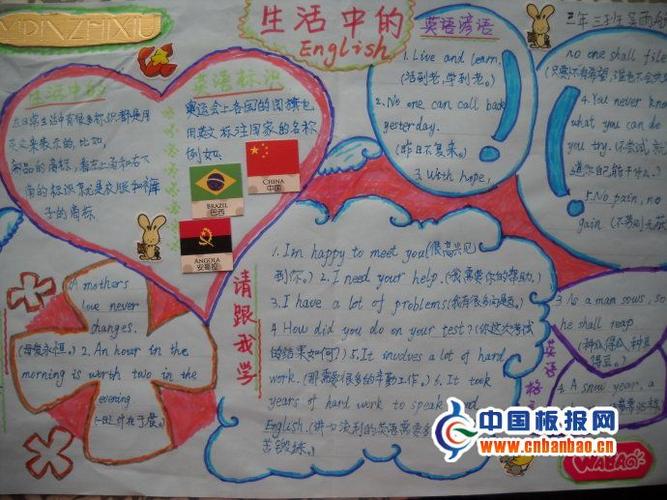 YIPINZHIXIU
生活中的
English
生活中的
在日常生活中有很多标识都是用
英文来表示的,比如,
商品的商标,看左上角和右下
角的标识就是衣服和裤
子的商标
英语标识
奥运会上各国的国旗也
用英文标注国家的名称
例如:
CHINA
中国
BRAZIL
巴西
ANGOLA
安哥拉
英语谚语
1. Live and learn.
(活到老,学到老。)
2. No one can call back
yesterday.
(昨日不复来。)
3. With hope,
三年三班
no one shall
4. You never know
what you can do
you try.
5. No pain, no
gain
A mothers
love never
changes.
(母爱永恒。) 2. An hour in the
morning is worth two in the
evening
请跟我学
1. I'm happy to meet you (很高兴见
到你。) 2. I need your help. (我需要你的帮助.)
3. I have a lot of problems (我有很多问题。)
4. How did you do on your test? (你这次考试
的结果如何?) 5. It involves a lot of hard
work. (那需要很多的辛勤工作。) 6. It took
years of hard work to speak
English.
苦锻练。)
3 As a man sows, so
he shall reap
(种瓜得瓜,种豆
得豆。)
英语格
4. A snow year, a
中国板报网
www.cnbanbao.cn
WABAO